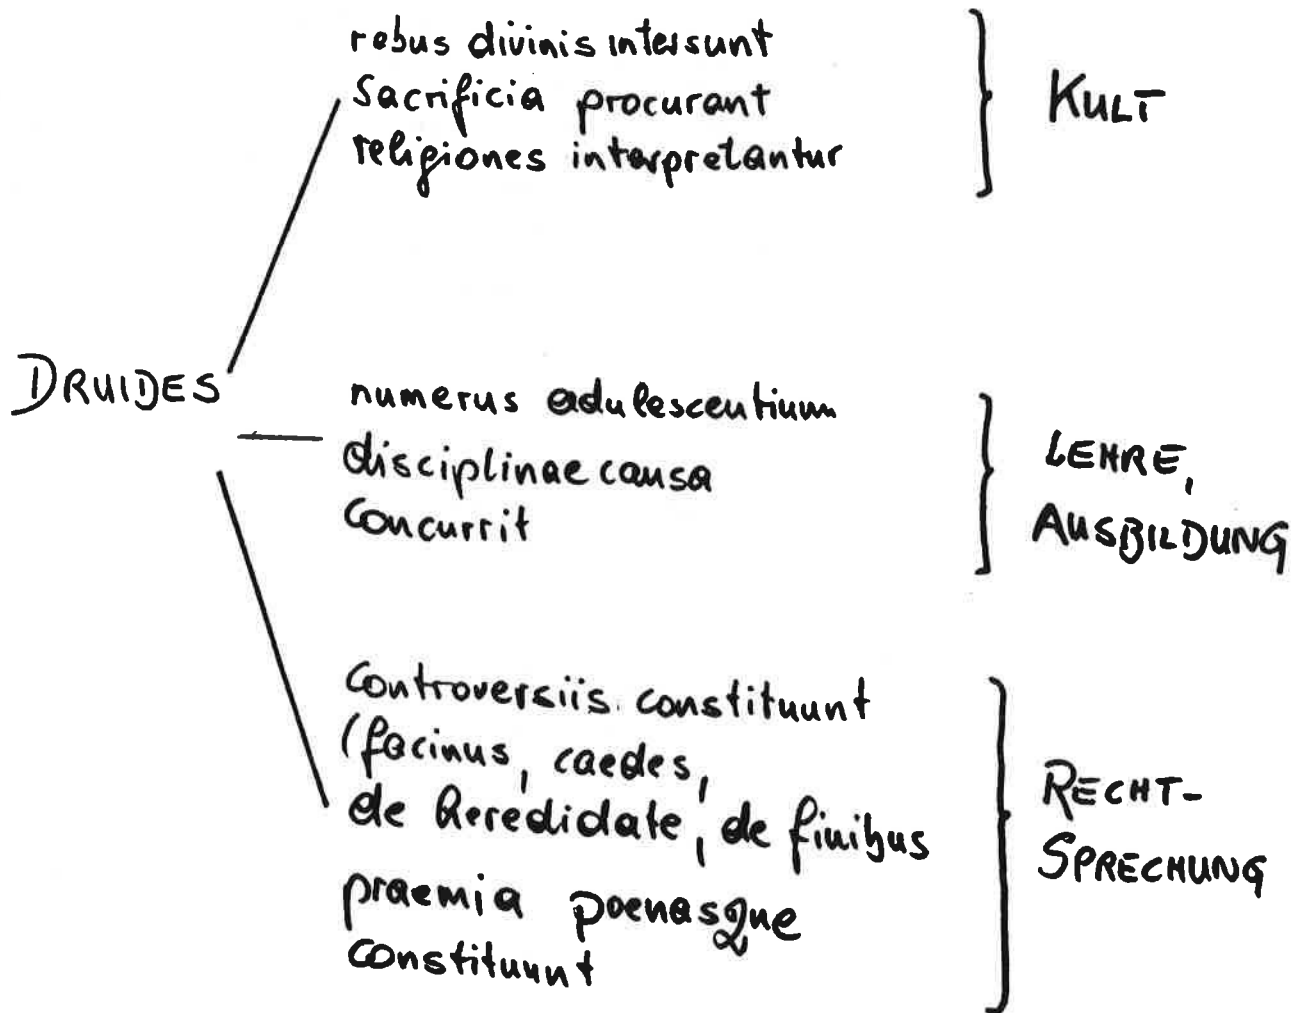 rebus divinis intersunt
Sacrificia procurant
religiones interpretantur
KULT
DRUIDES
numerus adulescentium
disciplinae causa
Concurrit
LEHRE,
AUSBILDUNG
Controversiis constituunt
(facinus, caedes,
de heredidate, de finibus
praemia poenasque
constituunt
RECHT-
SPRECHUNG